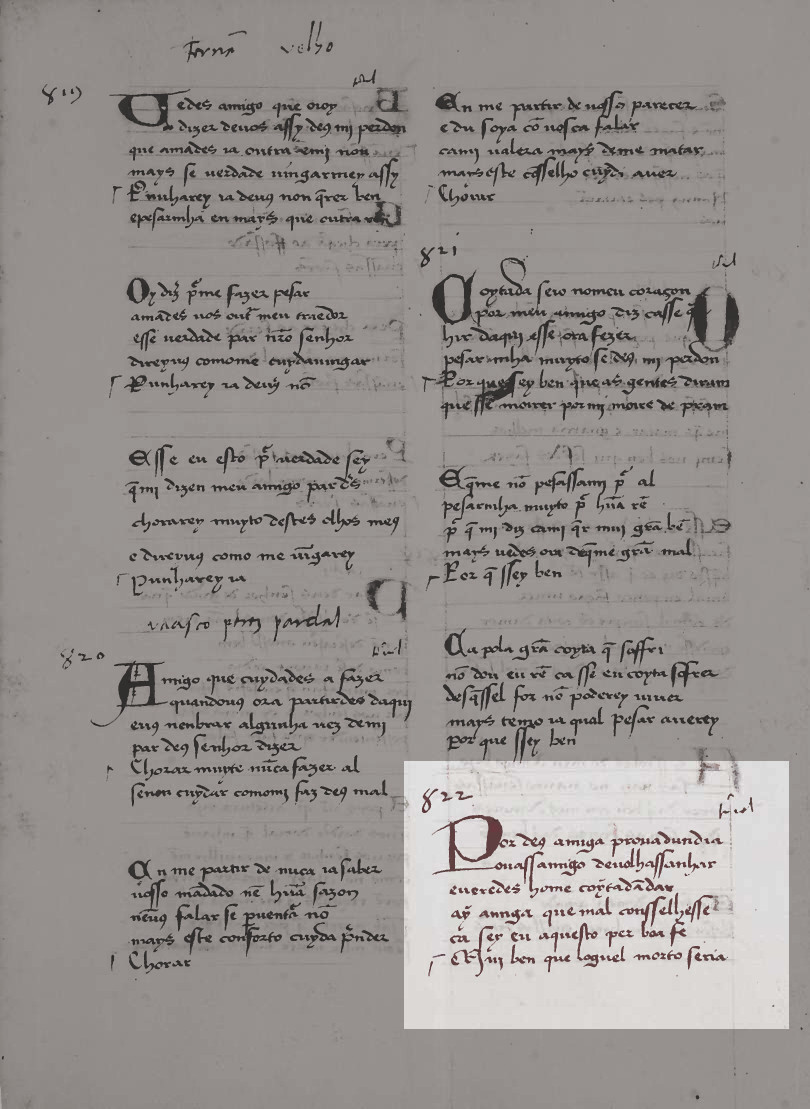 fernã velho
819
Vedes amigo que oioy
dizer deuos assy de9 mi perdon
que amades ia outra e mi non
mays se uerdade uingarmey assy
Punharey ia deu9 non q̃rer ben
e pesarmha en mays que outra rẽ
Oy diz̃ p̃ me fazer pesar
amades uos out̃ meu traedor
esse uerdade par nr̃o senhor
direyu9 comome cuydauingar
Punharey ia deu9 nõ
Esse eu esto p̃ uerdade sey
q̃mi dizen meu amigo par d's
chorarey muyto destes olhos me9
e direyu9 como me uĩgarey
Punharey ia
uaasco prz pardal
820
Amigo que cuydades a fazer
quandou9 ora partirdes daqui
eu9 nenbrar algunha uez demi
par de9 senhor dizer
Chorar muyte nũca fazer al
senon cuydar comomj faz de9 mal
En me partir de nuca ia saber
uosso mãdado nẽ hũa sazon
nẽu9 falar se p uentã nõ
mays este conforto cuyda p̃nder
Chorar
En me partir de uosso parecer
e du soya cõ uosca falar
cami ualera mays deme matar
mays este cõsselho cuyda auer
Chorar
821
Coytada seio nomeu coraçon
por meu amigo diz casse q̃
hir daqui esse ora fezer
pesar mha muyto se de9 mi perdon
Por que sey ben que as gentes diram
que sse moirer por mi moire de pram
E q̃me nõ pesassami p̃ al
pesarmha muyto p̃ hũa rẽ
p̃ q̃ mi diz cami q̃r mui grã bẽ
mays uedes ora deq̃me grã mal
Por q̃ ssey ben
Ca pola grã coyta q̃ soffri
nõ dou eu rẽ ca sse eu coyta sofrer
desq̃ssel for nõ poderey uiuer
mays tenzo ia qual pesar auerey
por que ssey ben
822
Por de9 amiga prouadundia
ouossamigo deuolhassanhar
eueredes home coytadãdar
ay amiga que mal consselhesse
ca sey eu aquesto per boa fe
Mui ben que loguel morto seria